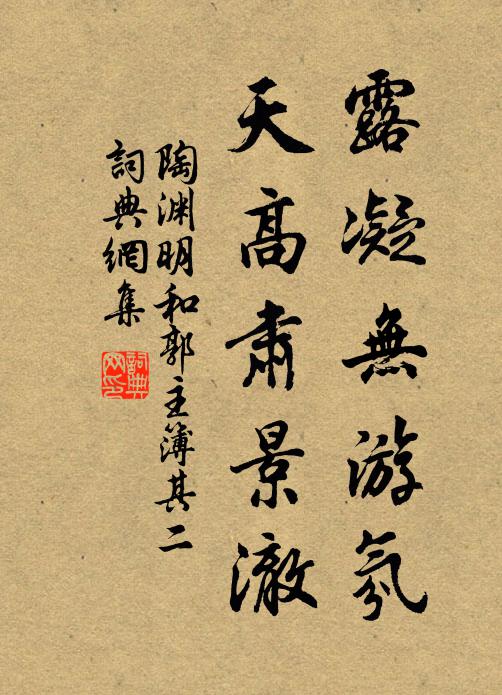 露凝無游氛
天高肅景澈
陶渊明和郭主簿其二
詞典網集
詞典網印